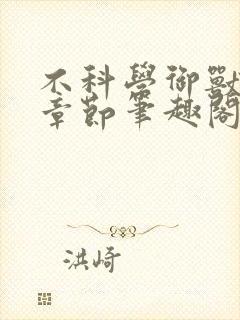 不科學御獸
章節筆趣閣
洪崎